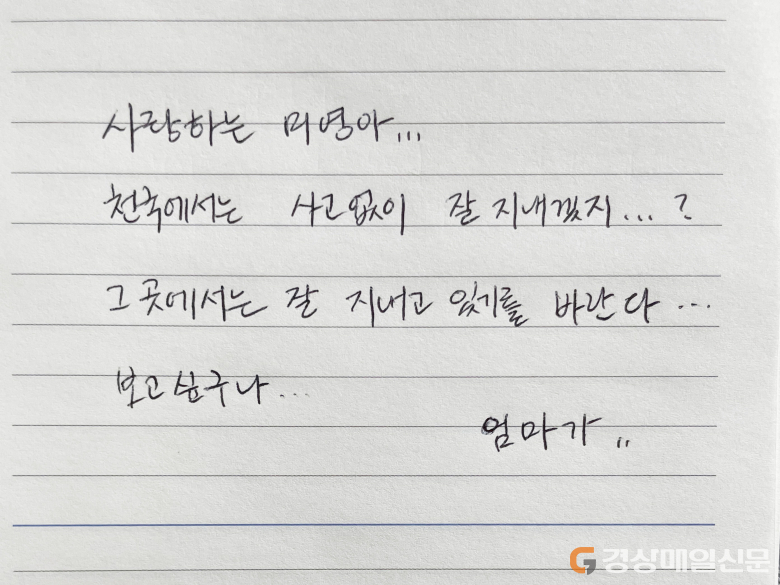 사랑하는 미영아...
천국에서는 사고없이 잘 지내겠지...?
그 곳에서는 잘 지내고 있기를 바란다...
보고싶구나...
엄마가..
경상매일신문